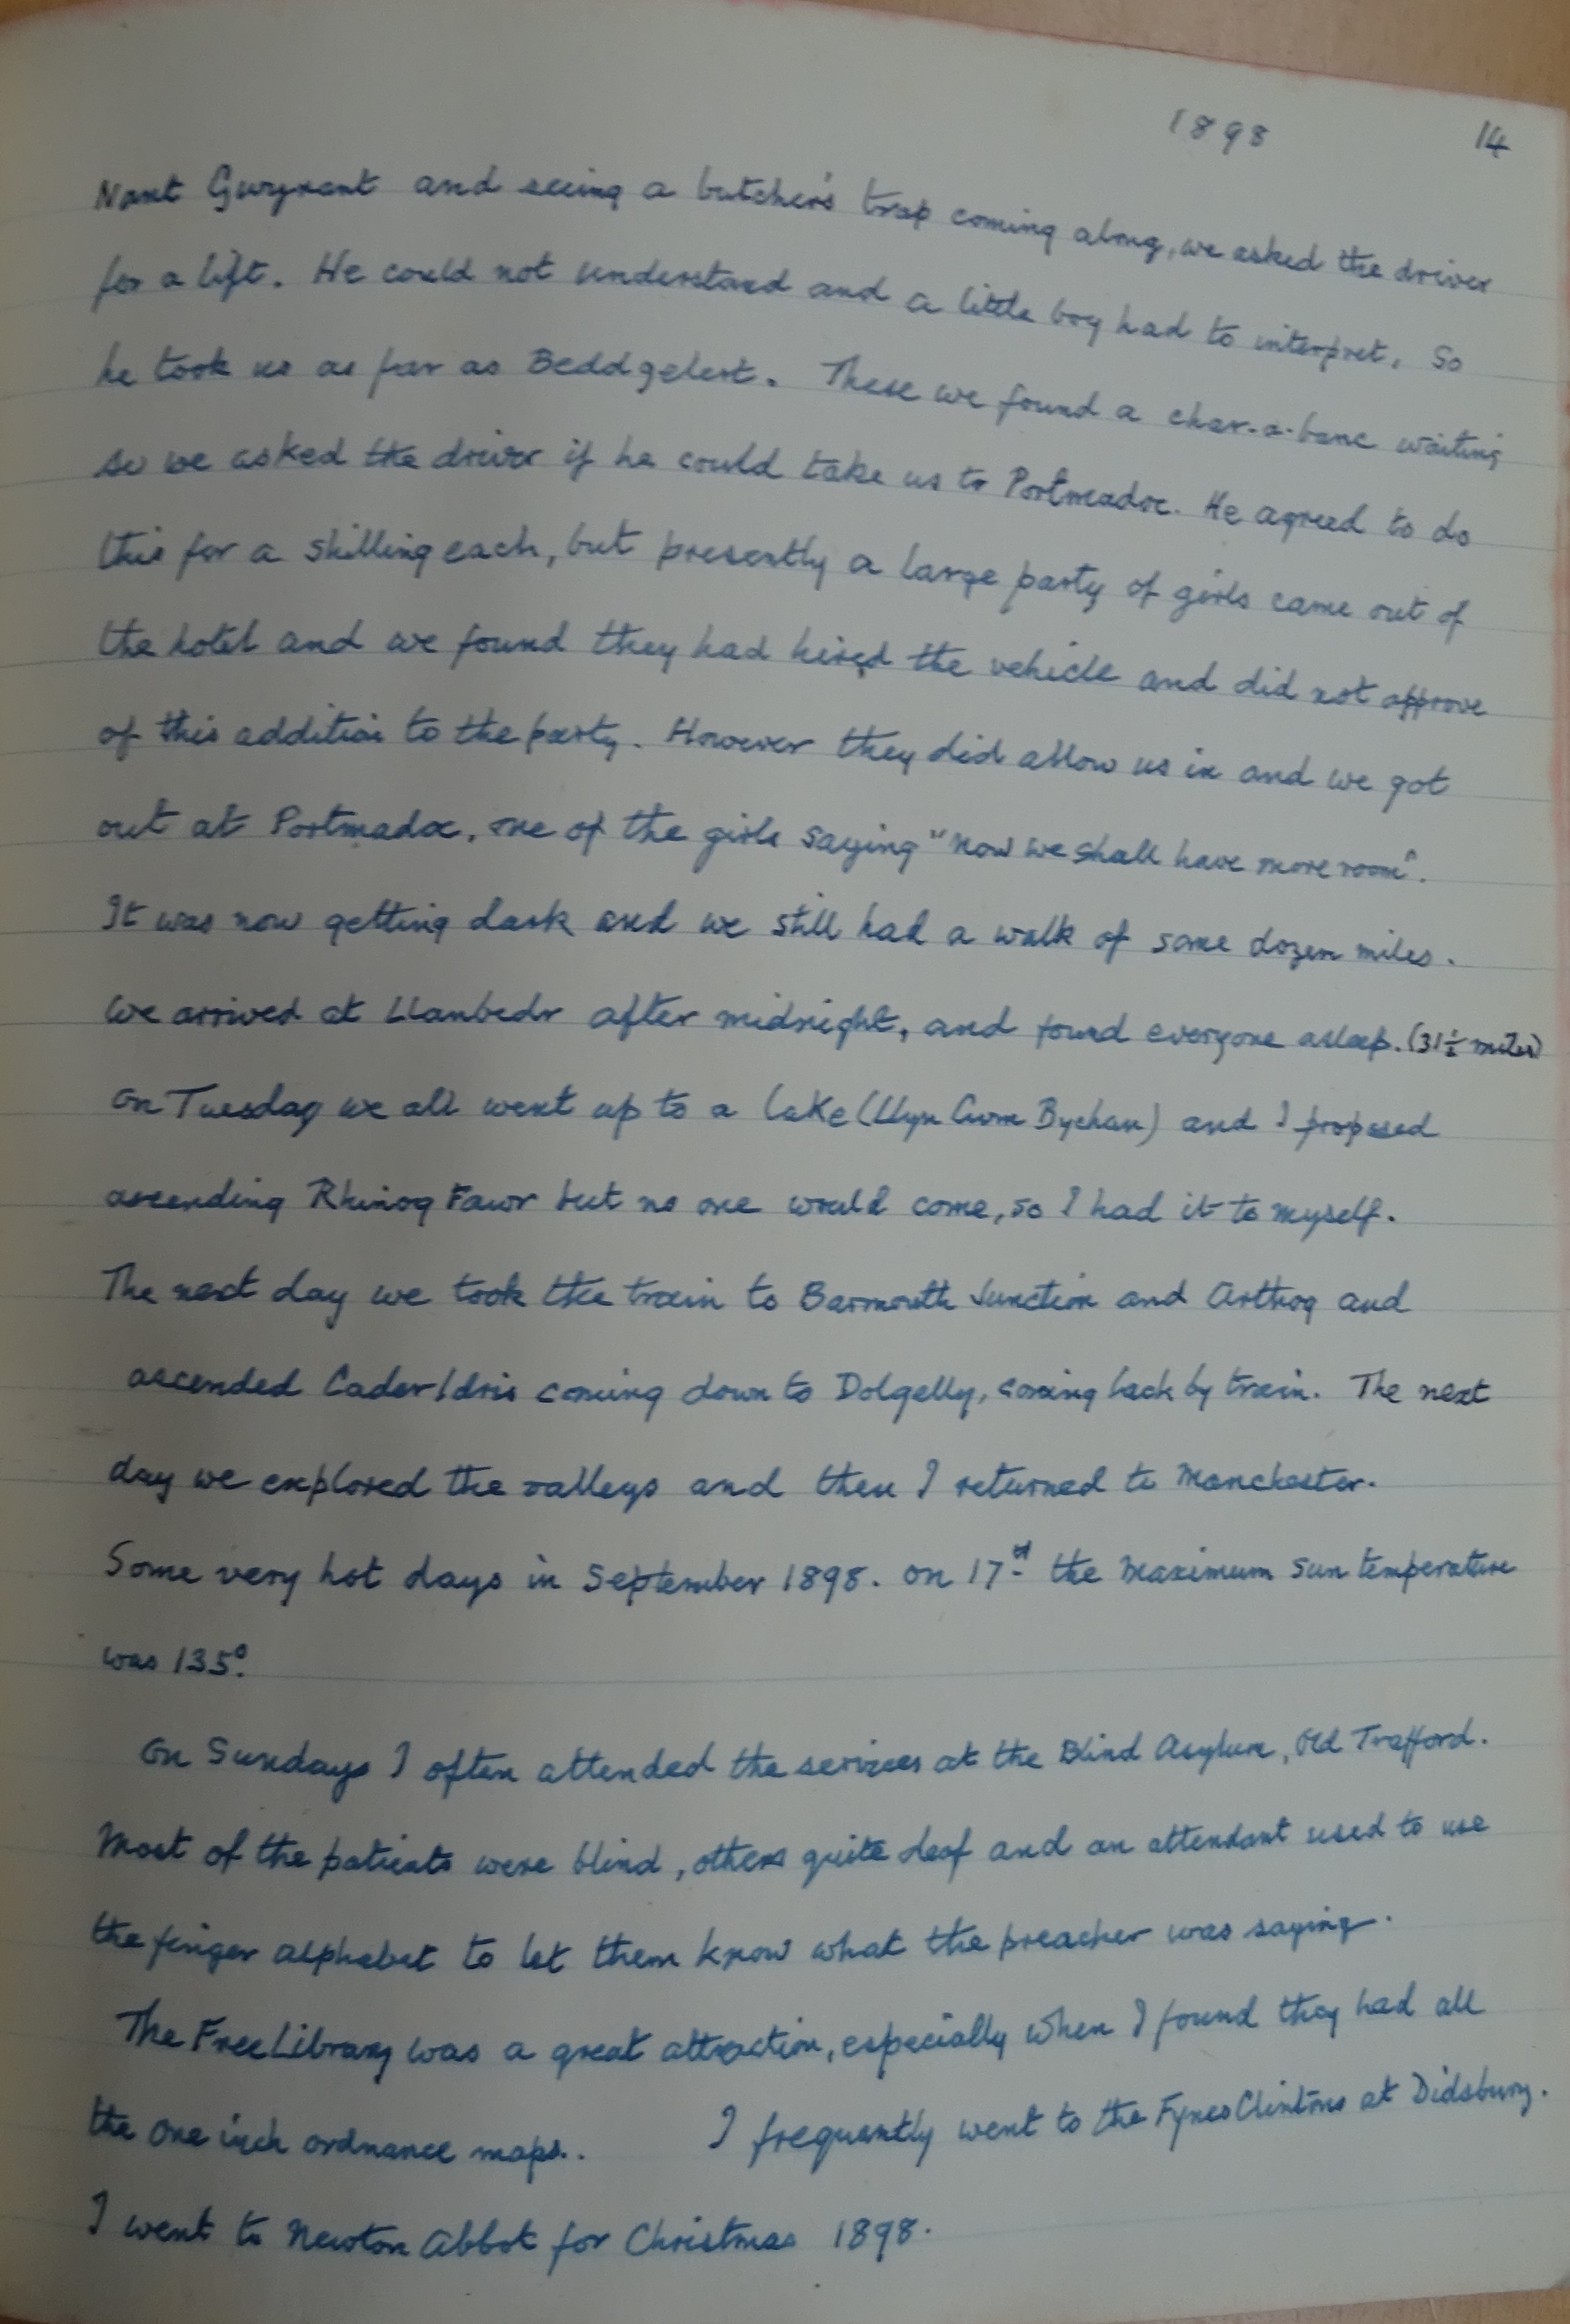 1898 14
Nant Gwynant and seeing a butcher's trap coming along, we asked the driver
for a lift. He could not understand and a little boy had to interpret. So
he took us as far as Beddgelert. There we found a char-a-banc waiting
so we asked the driver if he could take us to Portmadoc. He agreed to do
this for a shilling each, but presently a large party of girls came out of
the hotel and we found they had hired the vehicle and did not approve
of this addition to the party. However they did allow us in and we got
out at Portmadoc, one of the girls saying "now we shall have more room".
It was now getting dark and we still had a walk of some dozen miles.
We arrived at Llanbedr after midnight, and found everyone asleep. (31½ miles)
On Tuesday we all went up to a lake (Llyn Cwm Bychan) and I proposed
ascending Rhinog Fawr but no one would come, so I had it to myself.
The next day we took the train to Barmouth Junction and Arthog and
ascended Cader Idris coming down to Dolgelly, coming back by train. The next
day we explored the valleys and then I returned to Manchester.
Some very hot days in September 1898. On 17th the maximum sun temperature
was 135°.
On Sundays I often attended the services at the Blind Asylum, Old Trafford.
Most of the patients were blind, others quite deaf and an attendant used to use
the finger alphabet to let them know what the preacher was saying.
The Free Library was a great attraction, especially when I found they had all
the one inch ordnance maps.. I frequently went to the Fynes Clintons at Didsbury.
I went to Newton Abbot for Christmas 1898.